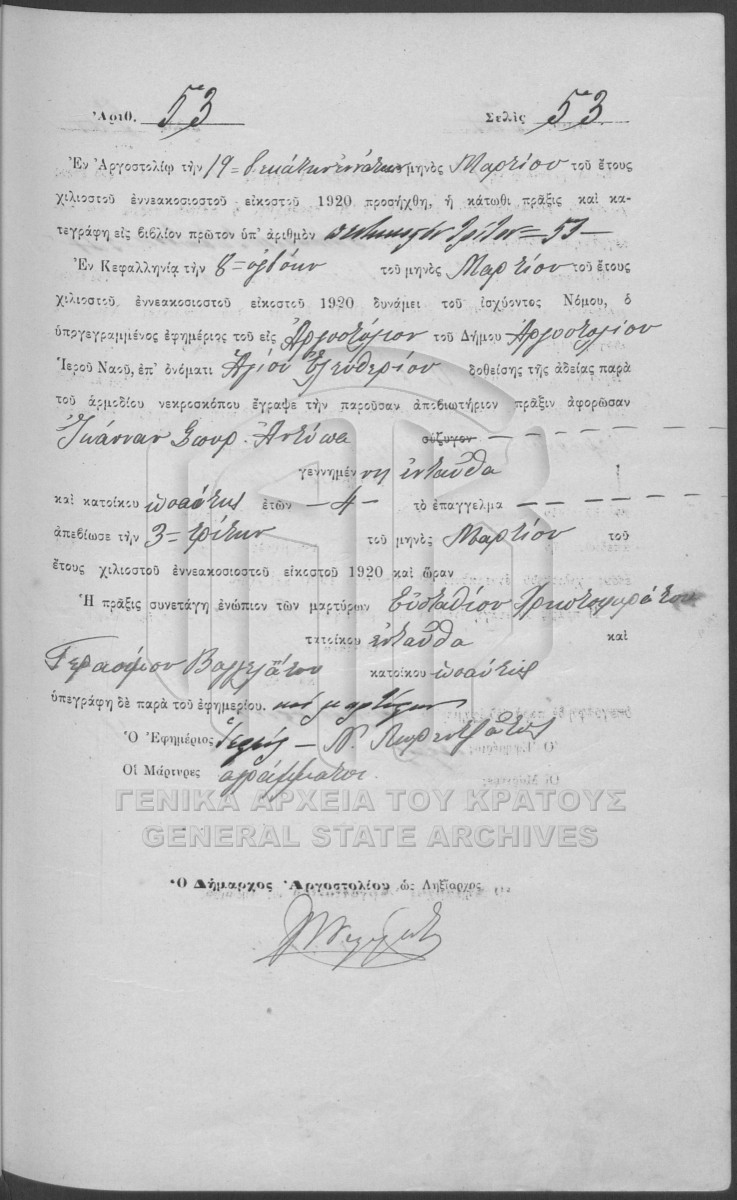 Ἀριθ. 53 Σελὶς 53
Ἐν Ἀργοστολίῳ τὴν 19 = δεκάτην ἐνάτην μηνὸς Μαρτίου τοῦ ἔτους
χιλιοστοῦ ἐννεακοσιοστοῦ εἰκοστοῦ 1920 προσήχθη, ἡ κάτωθι πρᾶξις καὶ κα-
τεγράφη εἰς βιβλίον πρῶτον ὑπ' ἀριθμὸν πεντηκοστὸν τρίτον = 53 —
Ἐν Κεφαλληνίᾳ τὴν 8 = ὀγδόην τοῦ μηνὸς Μαρτίου τοῦ ἔτους
χιλιοστοῦ ἐννεακοσιοστοῦ εἰκοστοῦ 1920 δυνάμει τοῦ ἰσχύοντος Νόμου, ὁ
ὑπογεγραμμένος ἐφημέριος τοῦ εἰς Ἀργοστόλιον τοῦ Δήμου Ἀργοστολίου
Ἱεροῦ Ναοῦ, ἐπ' ὀνόματι Ἁγίου Ἐλευθερίου δοθείσης τῆς ἀδείας παρὰ
τοῦ ἁρμοδίου νεκροσκόπου ἔγραψε τὴν παροῦσαν ἀποβιωτήριον πρᾶξιν ἀφορῶσαν
Ἰωάνναν Σπυρ. Ἀντύπα σύζυγον — — — — — —
γεννημένην ἐνταῦθα
καὶ κατοίκου ὡσαύτως ἐτῶν — 4 — τὸ ἐπάγγελμα — — — — — —
ἀπεβίωσε τὴν 3 = τρίτην τοῦ μηνὸς Μαρτίου τοῦ
ἔτους χιλιοστοῦ ἐννεακοσιοστοῦ εἰκοστοῦ 1920 καὶ ὥραν
Ἡ πρᾶξις συνετάγη ἐνώπιον τῶν μαρτύρων Εὐσταθίου Χριστοφοράτου
κατοίκου ἐνταῦθα καὶ
Γερασίμου Βαγγελάτου κατοίκου ὡσαύτως
ὑπεγράφη δὲ παρὰ τοῦ ἐφημερίου. καὶ μαρτύρων
Ὁ Ἐφημέριος Ἱερεύς — Ν. Λορεντζᾶτος
Οἱ Μάρτυρες ἀγράμματοι.
ΓΕΝΙΚΑ ΑΡΧΕΙΑ ΤΟΥ ΚΡΑΤΟΥΣ
GENERAL STATE ARCHIVES
Ὁ Δήμαρχος Ἀργοστολίου ὡς Ληξίαρχος